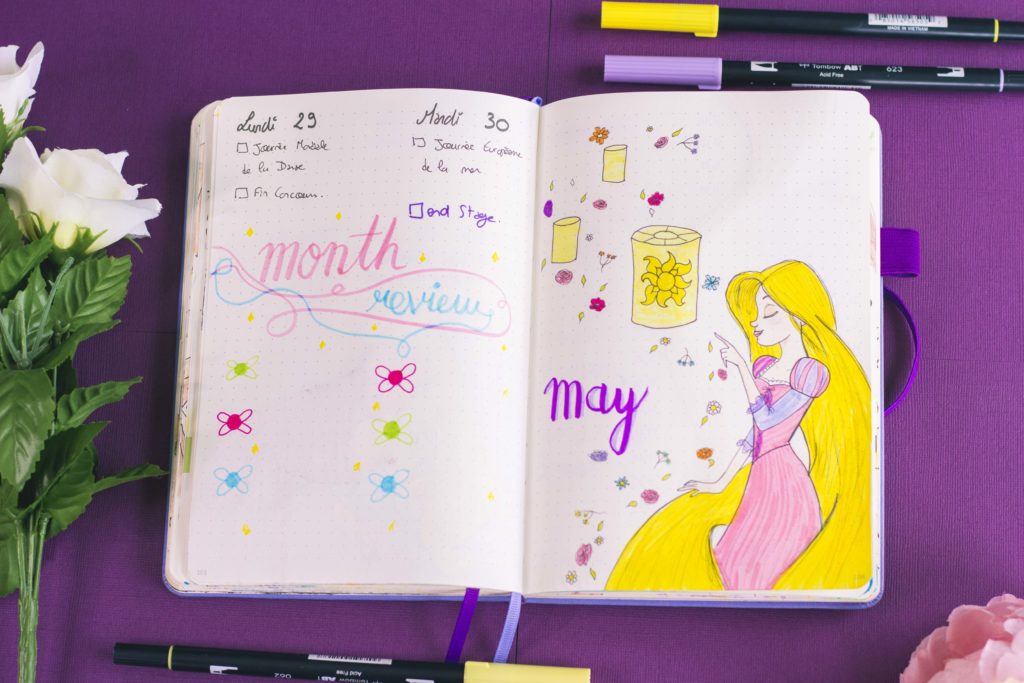 MADE IN VIETNAM
Tombow ABT 623
Acid Free
Lundi 29
Journée Mondiale
de la Danse
Fin Concours.
Mardi 30
Journée Européenne
de la mer
end Stage.
month
review
may
Acid Free